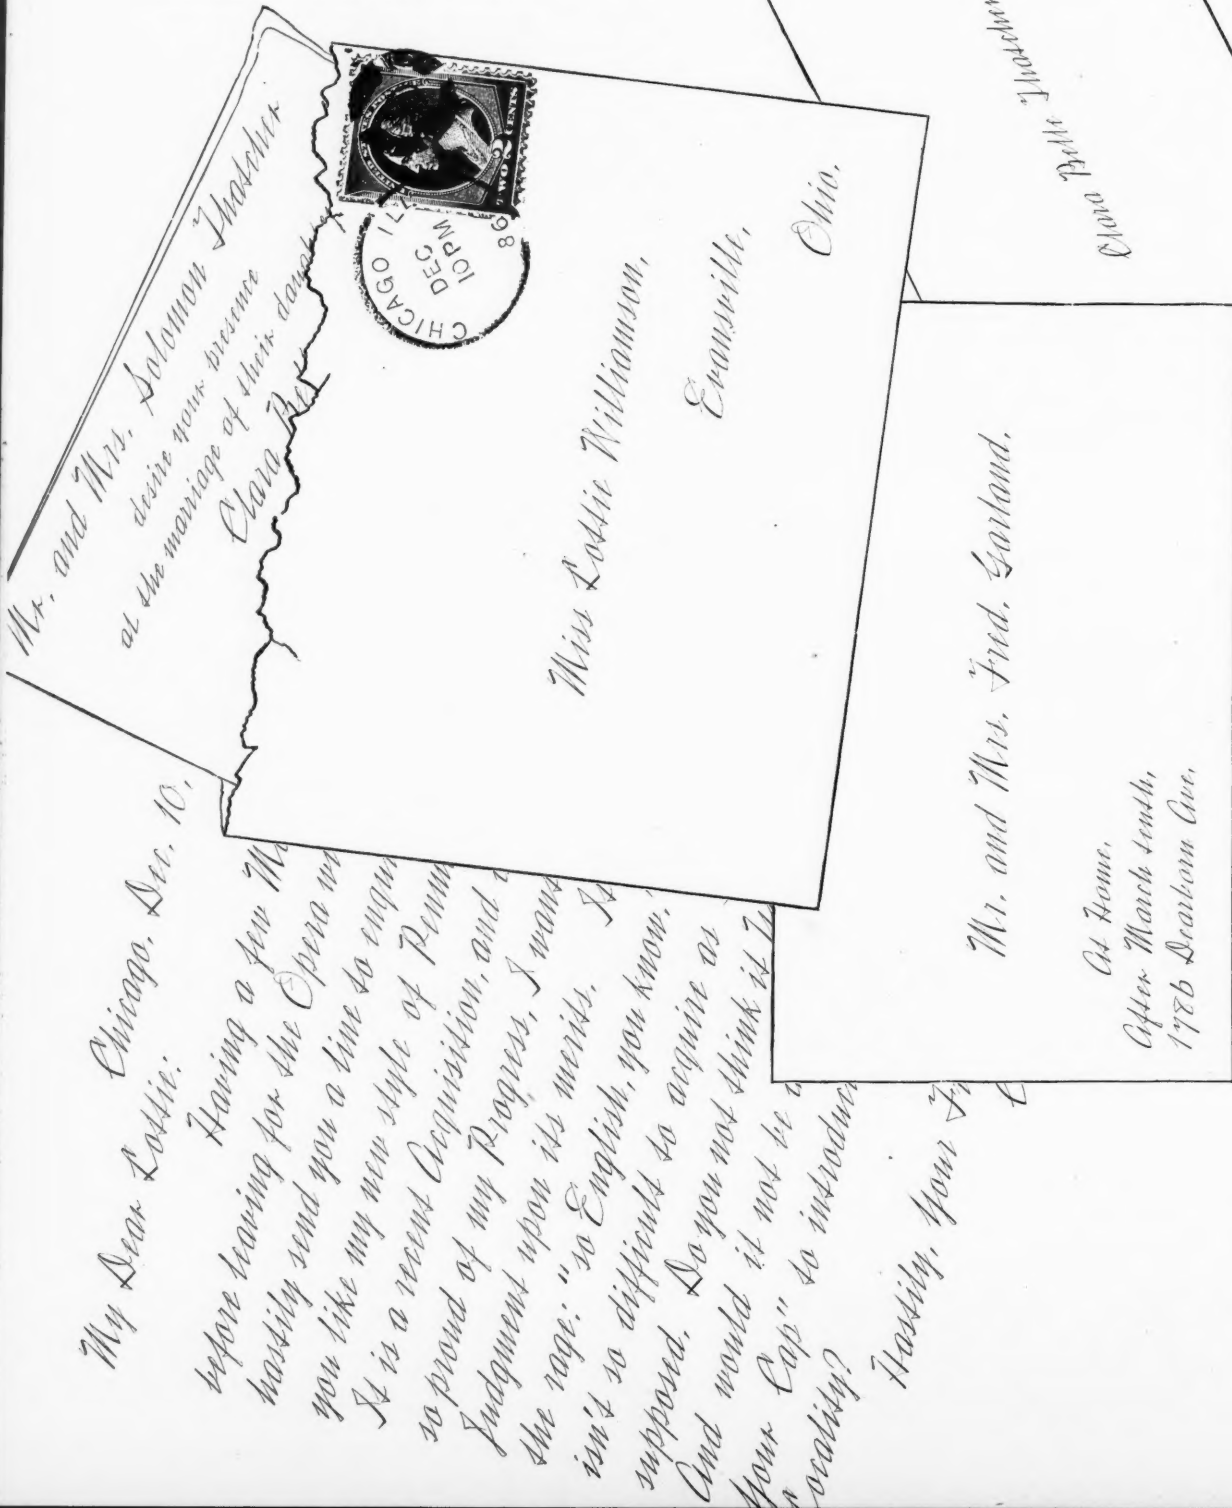 Mr. and Mrs. Solomon Thatcher
desire your presence
at the marriage of their daugh
Clara Be
CHICAGO ILL
DEC
10 PM
86
TWO 2 CENTS
Miss Lottie Williamson,
Evansville,
Ohio.
Clara Belle Thatcher
Mr. and Mrs. Fred. Garland.
At Home,
After March tenth,
1786 Dearborn Ave.
Chicago, Dec. 10,
My Dear Lottie:
Having a few Mo
before leaving for the Opera
hastily send you a line to enqu
you like my new style of Penm
It is a recent Acquisition, and
so proud of my Progress, I want
Judgment upon its merits. It
the rage: "so English, you know."
isn't so difficult to acquire as
supposed. Do you not think it
And would it not be
your Cap" to introduc
Locality?
Hastily, Your